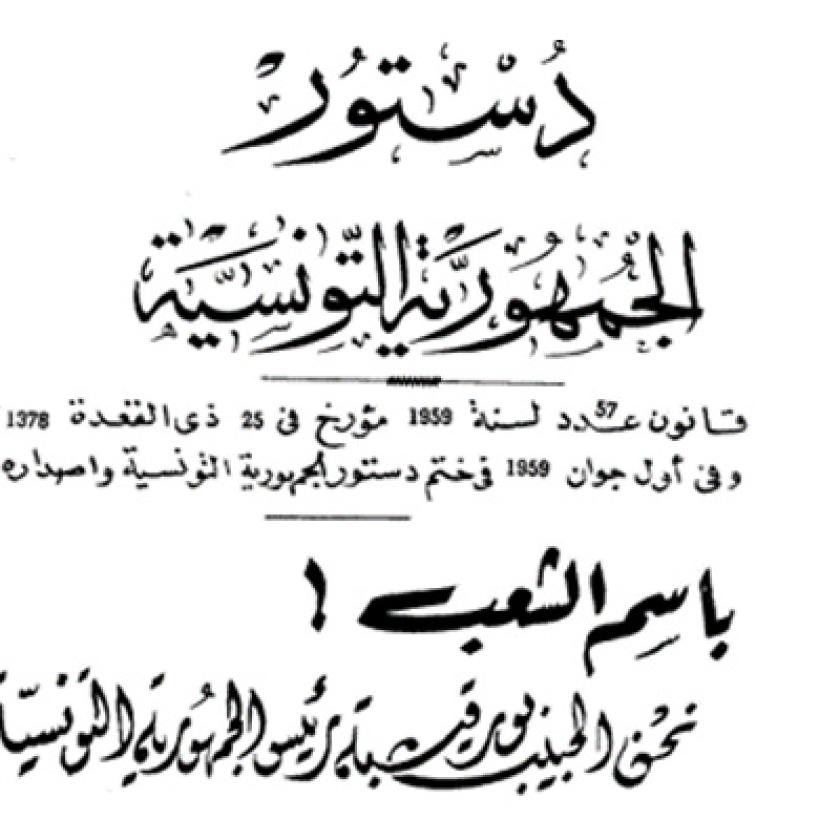 دُسْتُورُ
الجُمْهُورِيَّةِ التُّونِسِيَّةِ
قانون عدد 57 لسنة 1959 مؤرخ في 25 ذي القعدة 1378
وفي أول جوان 1959 في ختم دستور الجمهورية التونسية واصداره
باسم الشعب !
نحن الحبيب بورقيبة رئيس الجمهورية التونسية